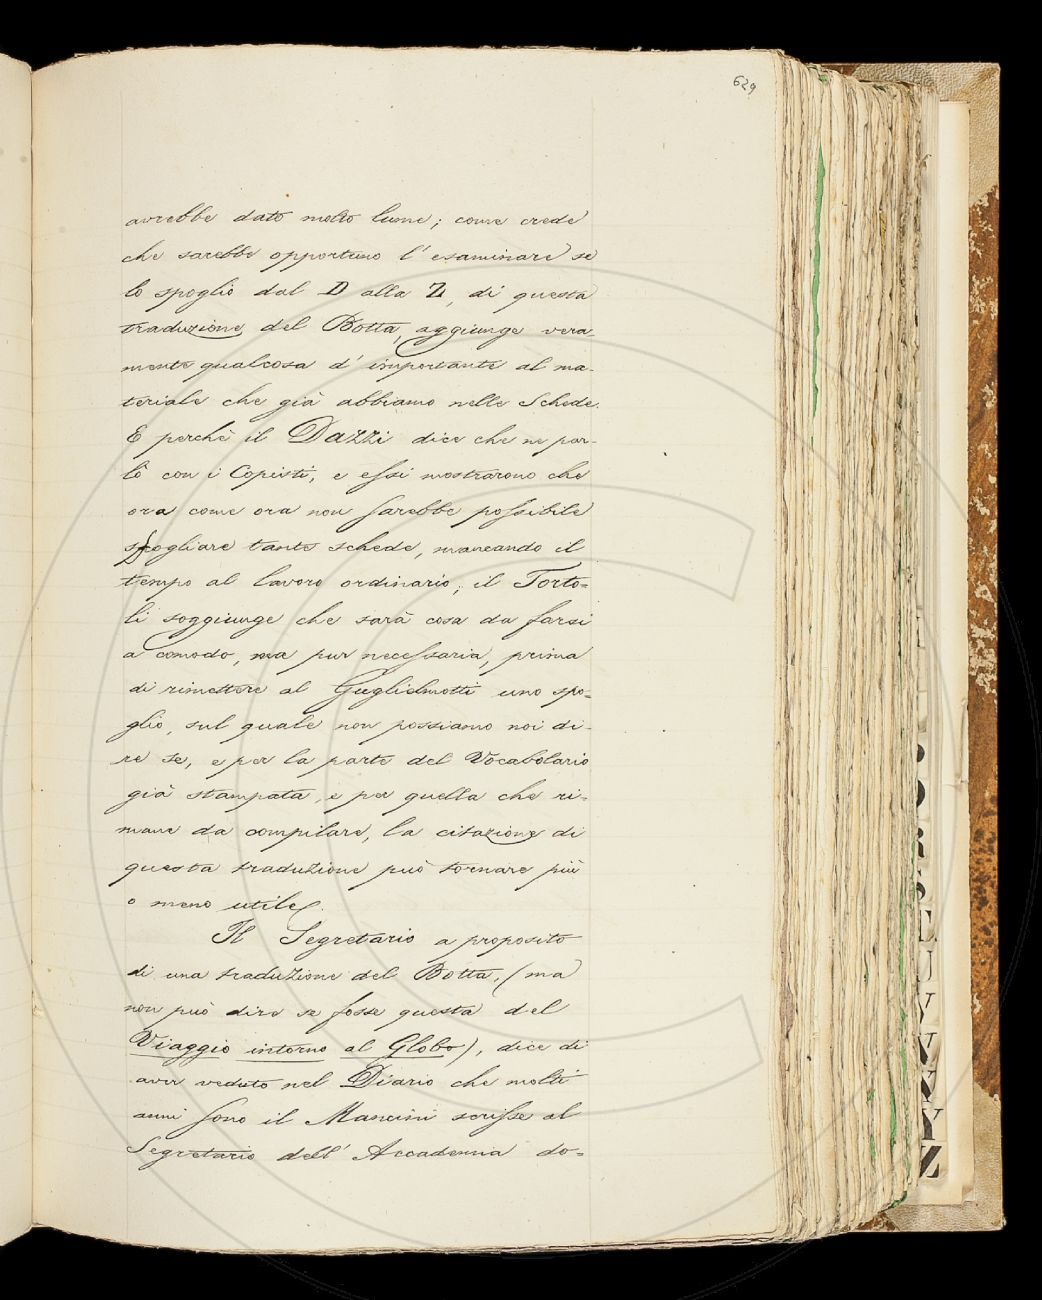 629
avrebbe dato molto lume; come crede
che sarebbe opportuno l'esaminare se
lo spoglio dal D alla Z, di questa
traduzione del Botta, aggiunge vera-
mente qualcosa d'importante al ma-
teriale che già abbiamo nelle Schede.
E perchè il Dazzi dice che ne par-
lò con i Copisti, e essi mostrarono che
ora come ora non sarebbe possibile
spogliare tante schede, mancando il
tempo al lavoro ordinario; il Torto=
li soggiunge che sarà cosa da farsi
a comodo, ma pur necessaria, prima
di rimettere al Guglielmotti uno spo=
glio, sul quale non possiamo noi di-
re se, e per la parte del Vocabolario
già stampata, e per quella che ri=
mane da compilare, la citazione di
questa traduzione può tornare più
o meno utile.
Il Segretario a proposito
di una traduzione del Botta, (ma
non può dire se fosse questa del
Viaggio intorno al Globo), dice di
aver veduto nel Diario che molti
anni sono il Mancini scrisse al
Segretario dell'Accademia do=
O
R
S
T
U
V
W
X
Y
Z